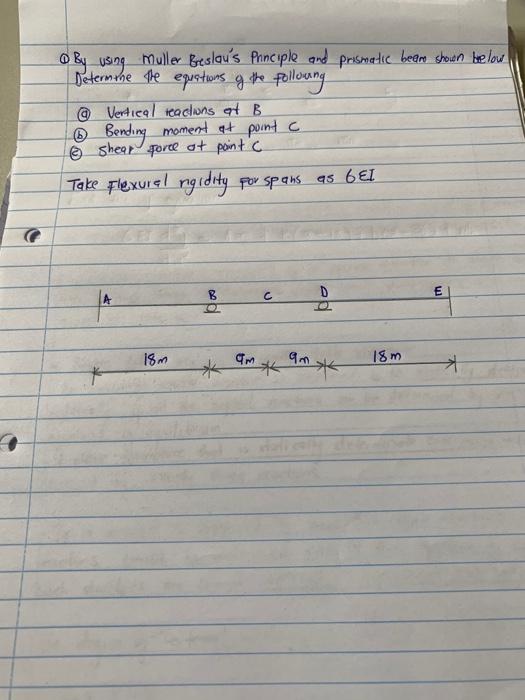 ① By using Muller Breslau's Principle and prismatic beam shown below
Determine the equations of the following
ⓐ Vertical reactions at B
ⓑ Bending moment at point C
ⓒ Shear force at point C
Take Flexural rigidity for spans as 6EI
A B C D E
18m 9m 9m 18m